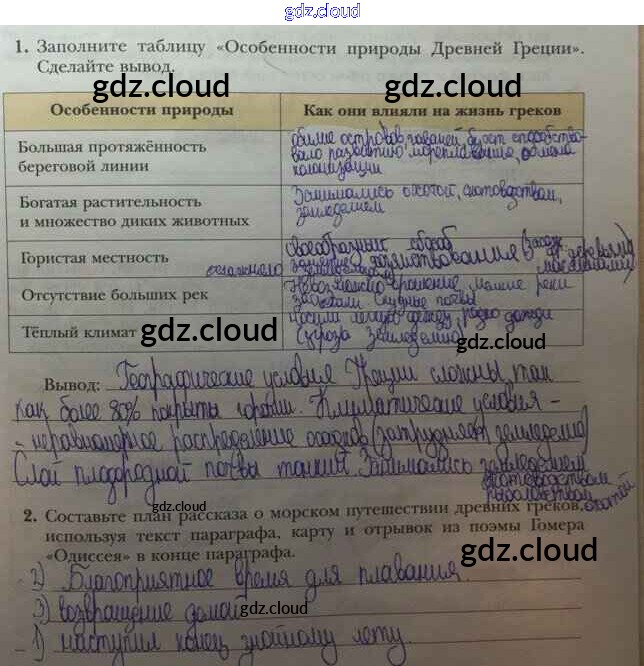 gdz.cloud
1. Заполните таблицу «Особенности природы Древней Греции».
Сделайте вывод.
gdz.cloud gdz.cloud
Особенности природы
Как они влияли на жизнь греков
Большая протяжённость
береговой линии
обилие островов гаваней, бухт способство-
вало развитию мореплавания, обмена
колонизации
Богатая растительность
и множество диких животных
Занимались охотой, скотоводством,
земледелием
Гористая местность
Своеобразный способ
хозяйствования
земледелием
Отсутствие больших рек
Невозможно орошение, мелкие реки
Скудные почвы
Тёплый климат
носили легкую одежду, редко дожди
(угроза земледелию)
gdz.cloud
gdz.cloud
Вывод: Географические условия Греции сложны, так
как более 80% покрыты горами. Климатические условия -
- неравномерное распределение осадков (затрудняет земледелие)
Слой плодородной почвы тонкий. Занимались земледелием
скотоводством
рыболовством, охотой
gdz.cloud
2. Составьте план рассказа о морском путешествии древних греков,
используя текст параграфа, карту и отрывок из поэмы Гомера
«Одиссея» в конце параграфа.
gdz.cloud
2) Благоприятное время для плавания.
3) возвращение домой
gdz.cloud
1) наступил конец знойному лету